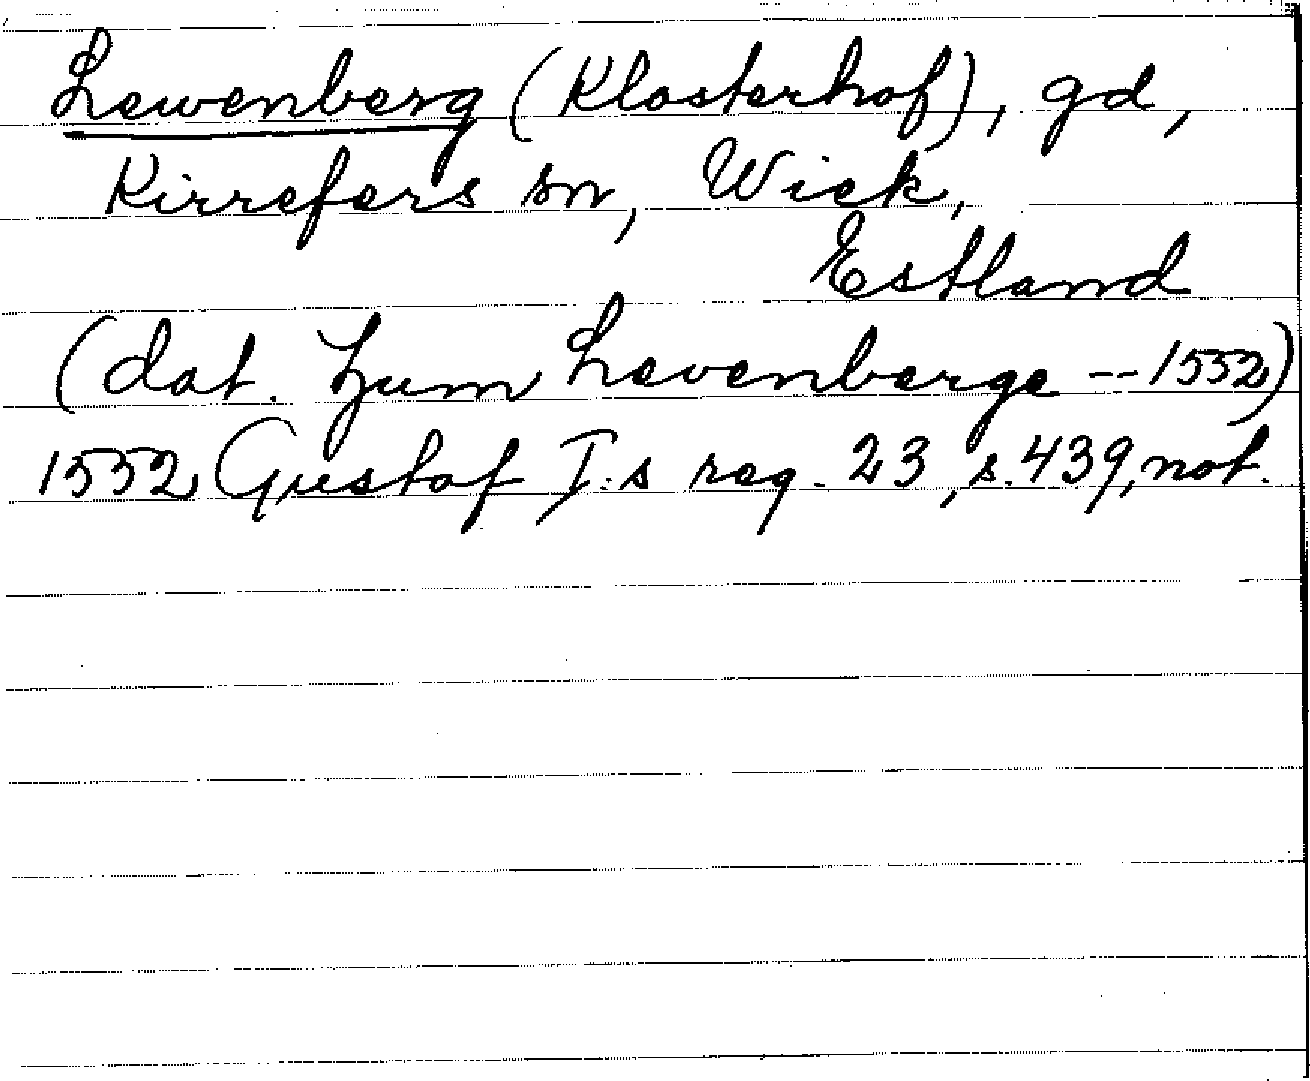 Lewenberg (Klosterhof), gd,
Kirrefers sn, Wiek,
Estland
(dat. Zum Levenberge -- 1552)
1552 Gustaf I:s reg. 23, s. 439, not.